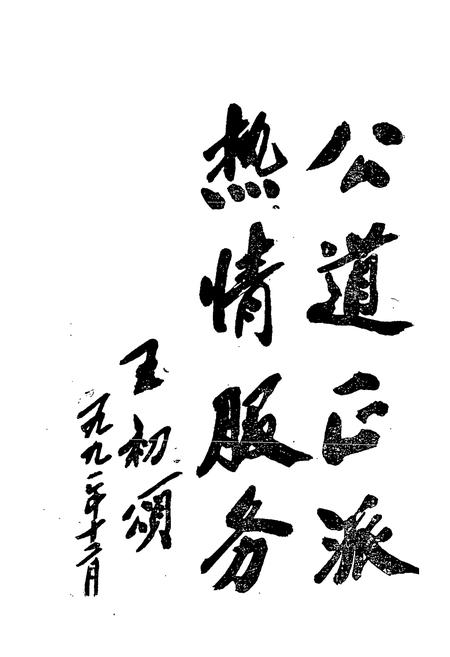 公道正派
热情服务
王初颂
一九九一年十二月